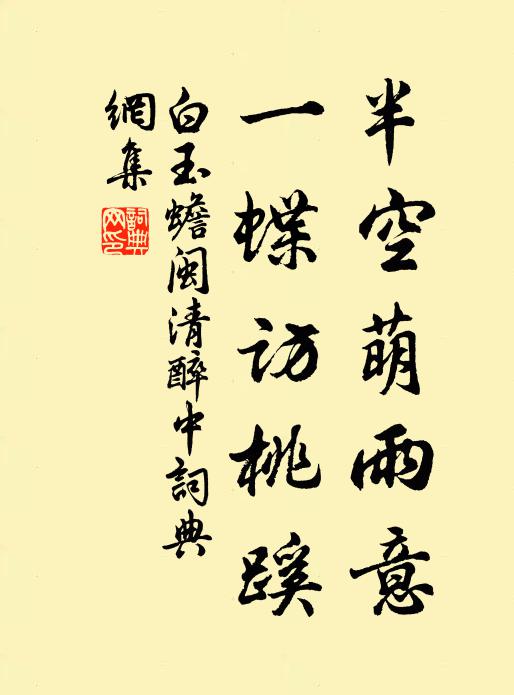 半空萌雨意
一蝶访桃蹊
白玉蟾闽清醉中詞典
網集
詞典
网印